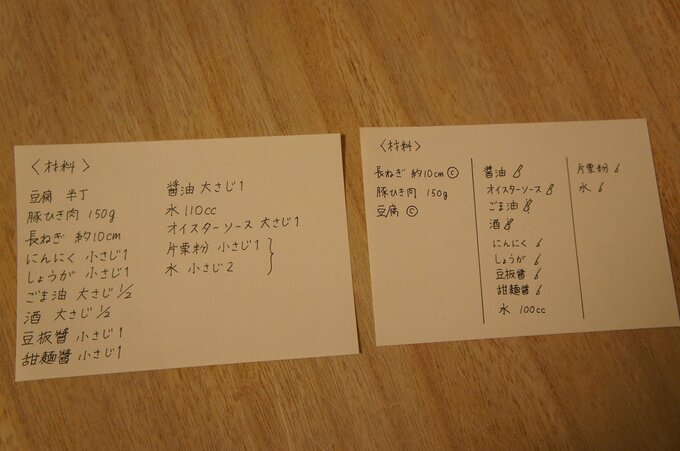 〈材料〉
豆腐 半丁
豚ひき肉 150g
長ねぎ 約10cm
にんにく 小さじ1
しょうが 小さじ1
ごま油 大さじ1/2
酒 大さじ1/2
豆板醤 小さじ1
甜麺醤 小さじ1
醤油 大さじ1
水 110cc
オイスターソース 大さじ1
片栗粉 小さじ1
水 小さじ2
〈材料〉
長ねぎ 約10cm ⓒ
豚ひき肉 150g
豆腐 ⓒ
醤油
オイスターソース
ごま油
酒
にんにく
しょうが
豆板醤
甜麺醤
水 100cc
片栗粉
水